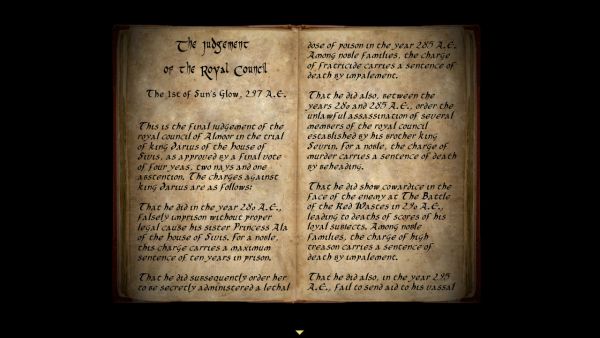 The Judgement
of the Royal Council
The 1st of Sun's Glow, 297 A.E.
This is the final judgement of the
royal council of Almoor in the trial
of king Darius of the House of
Sivis, as approved by a final vote
of four yeas, two nays and one
abstention. The charges against
king Darius are as follows:
That he did in the year 286 A.E.,
falsely imprison without proper
legal cause his sister Princess Ala
of the House of Sivis. For a noble,
this charge carries a maximum
sentence of ten years in prison.
That he did subsequently order her
to be secretly administered a lethal
dose of poison in the year 285 A.E.
Among noble families, the charge
of fratricide carries a sentence of
death by impalement.
That he did also, between the
years 286 and 285 A.E., order the
unlawful assassination of several
members of the royal council
established by his brother king
Sevrin. For a noble, the charge of
murder carries a sentence of death
by beheading.
That he did show cowardice in the
face of the enemy at The Battle
of the Red Wastes in A.E.,
leading to deaths of scores of his
loyal subjects. Among noble
families, the charge of high
treason carries a sentence of
death by impalement.
That he did also, in the year 295
A.E., fail to send aid to his vassal